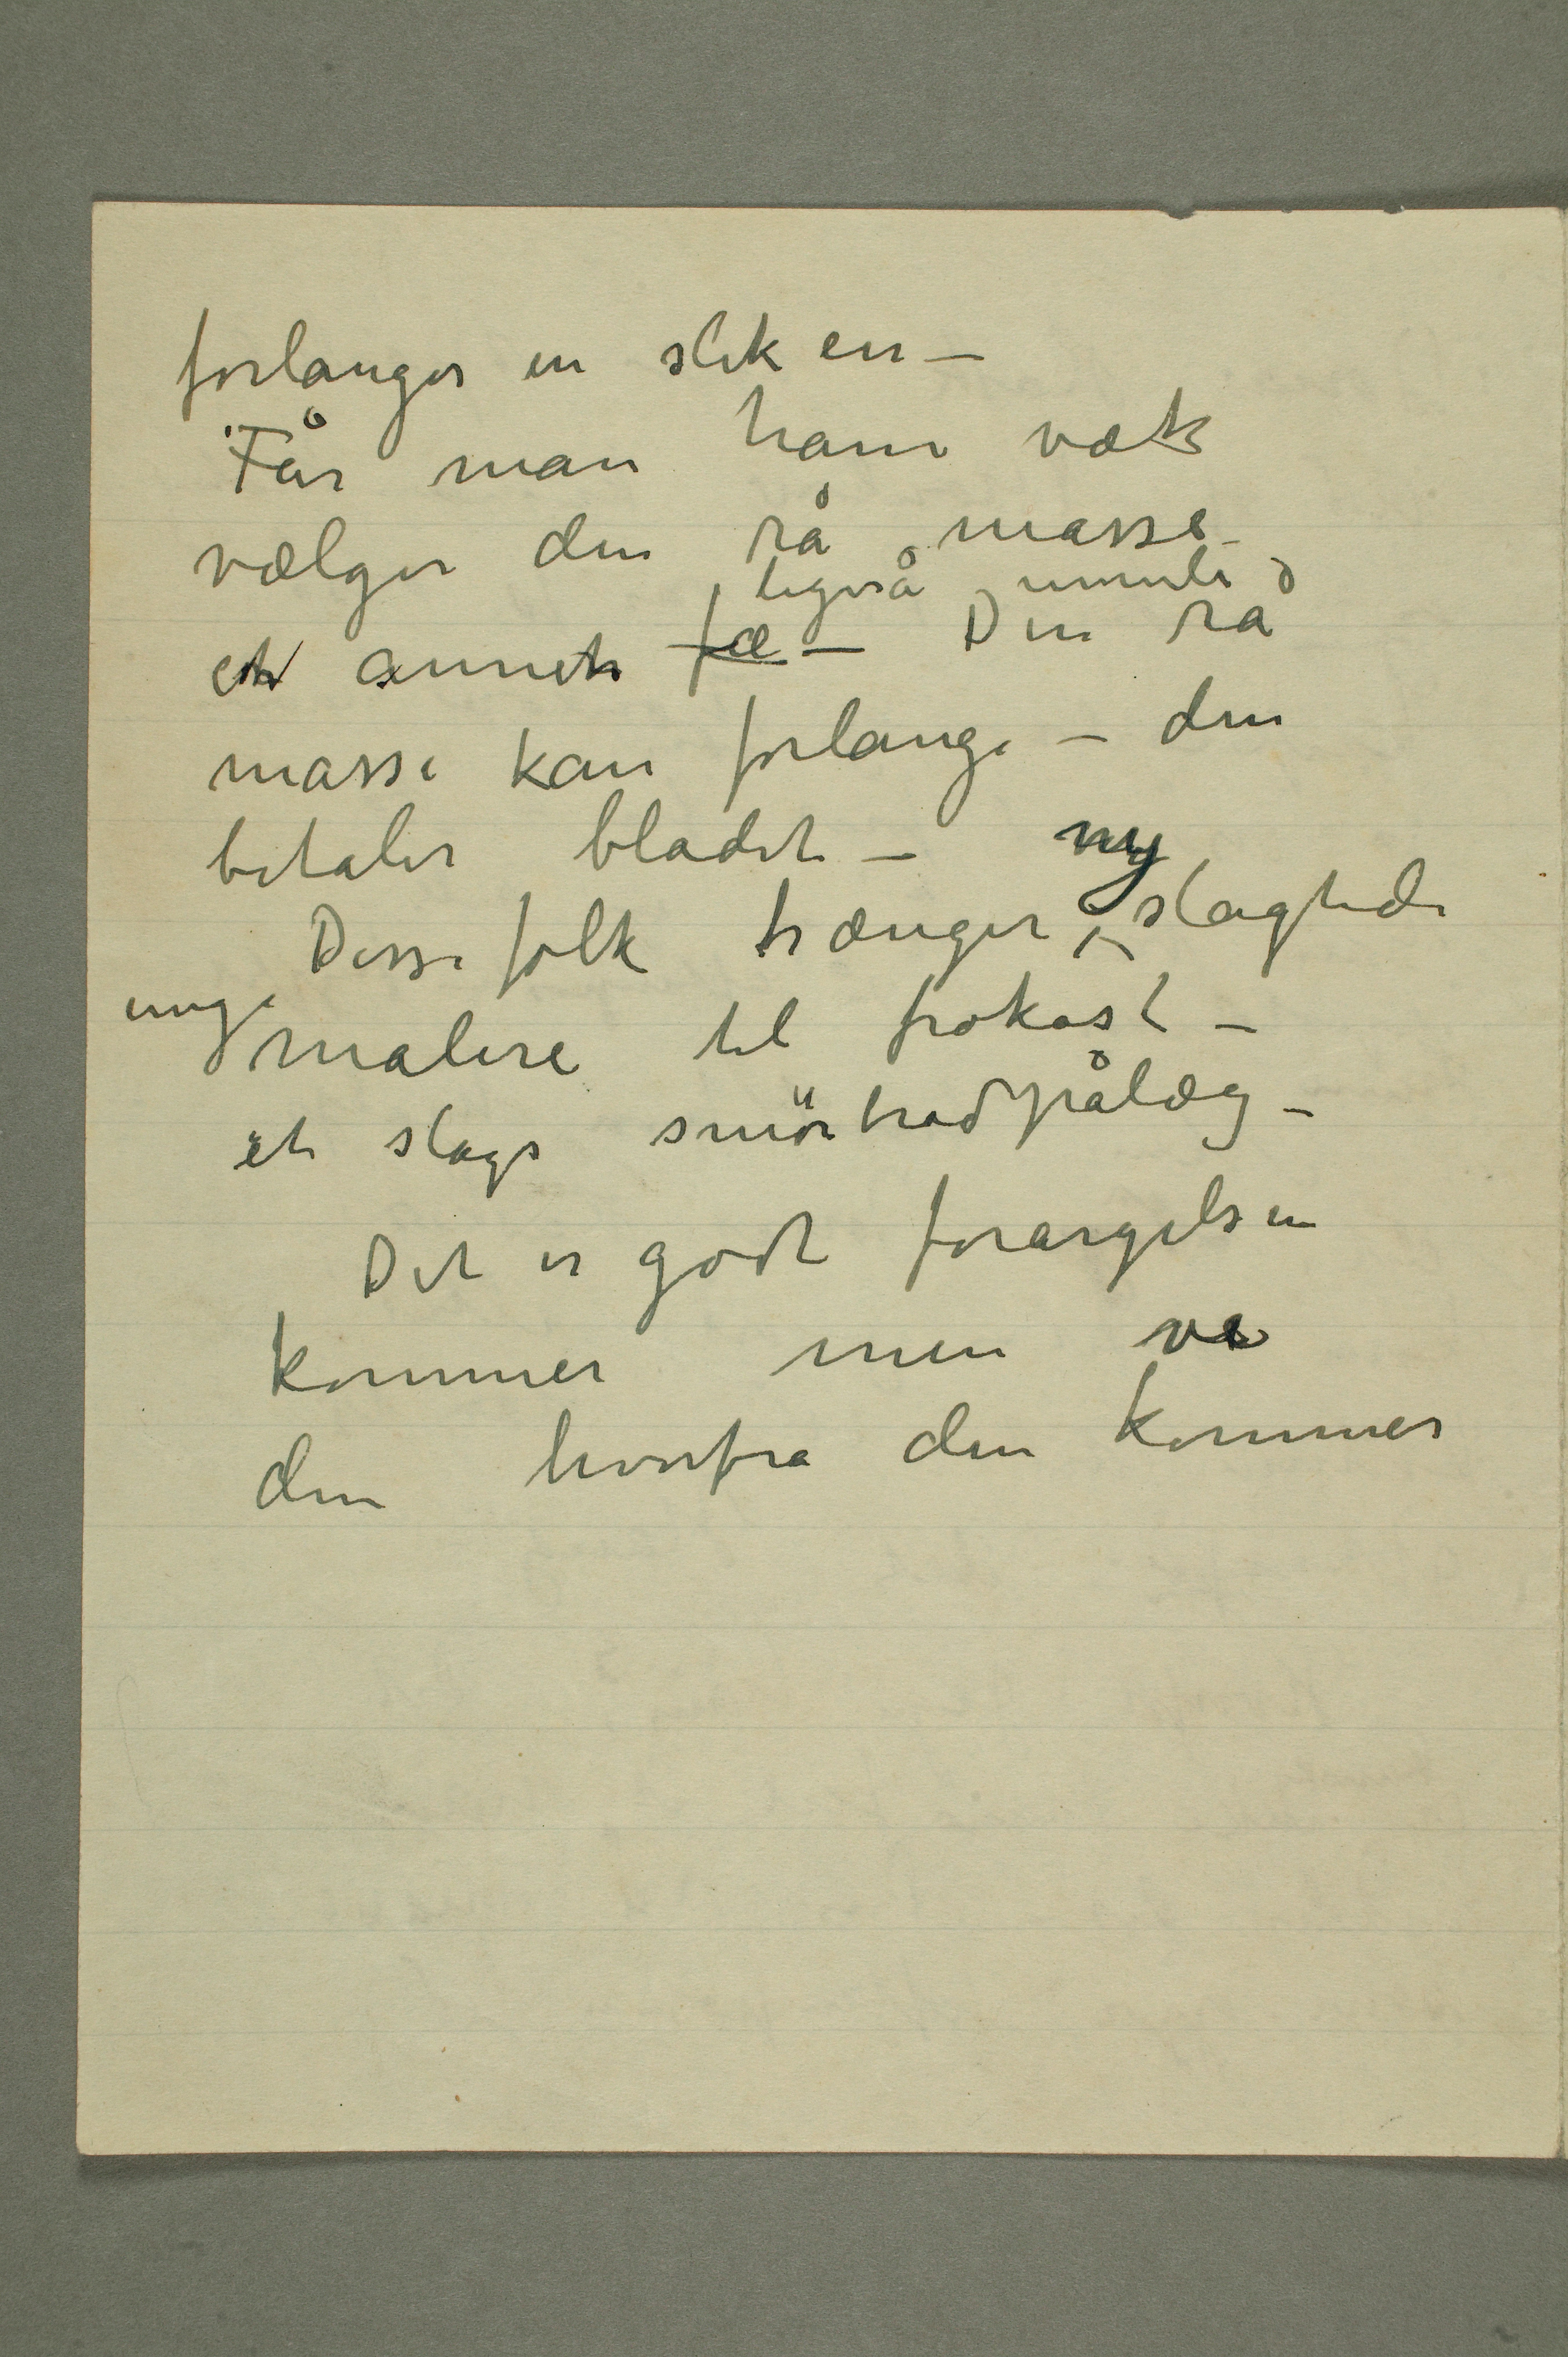 forlanger en slik en –
Får man ham væk
vælger den rå masse
ligeså umuli
et annet fæ – Den rå
masse kan forlange – den
betaler bladet –
Disse folk trænger ny slagtede
unge malere til frokost –
et slags smörbrødpålæg –
Det er godt forargelsen
kommer men ve
den hvorfra den kommer